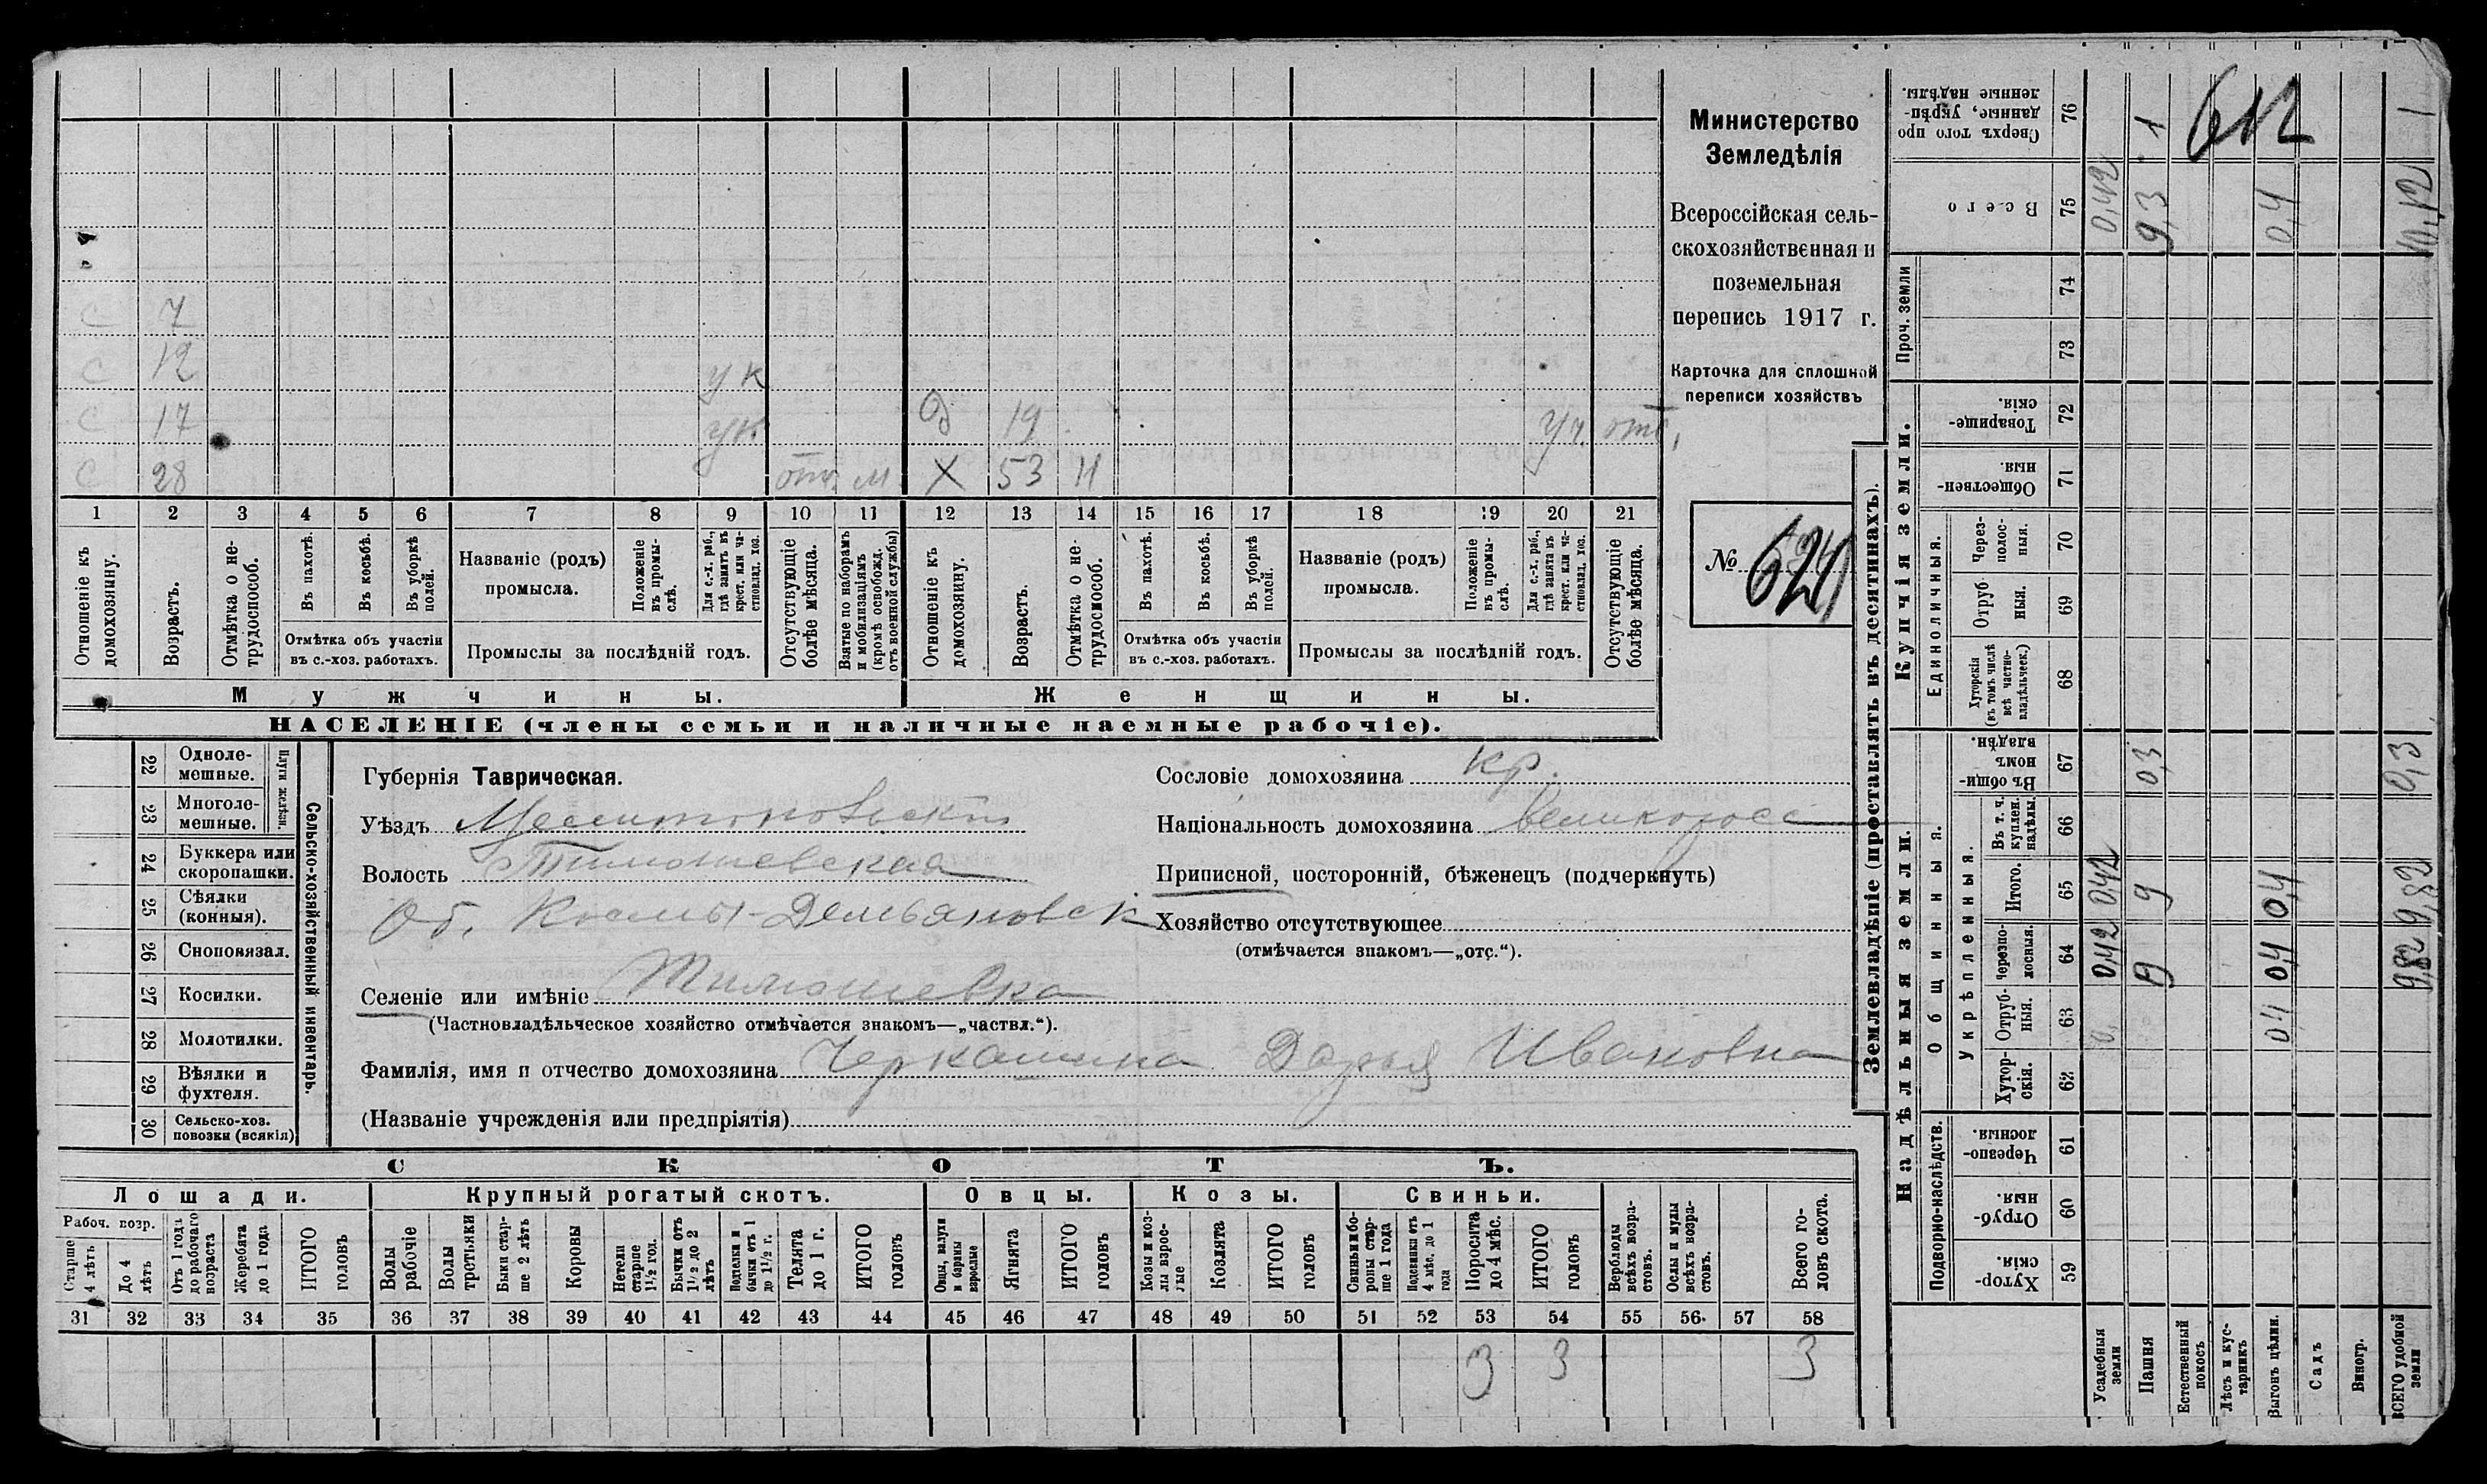 Министерство
Земледѣлія
Всероссійская сель-
скохозяйственная и
поземельная
перепись 1917 г.
Карточка для сплошной
переписи хозяйствъ
№ 621
С 7
С 12 ук
С 17 ук д 19 уч. отс.
С 28 отс. м Х 53 Н
1 2 3 4 5 6 7 8 9 10 11 12 13 14 15 16 17 18 19 20 21
Отношеніе къ домохозяину.
Возрастъ.
Отмѣтка о не-трудоспособ.
Въ пахотѣ.
Въ косьбѣ.
Въ уборкѣ полей.
Отмѣтка объ участіи
въ с.-хоз. работахъ.
Названіе (родъ)
промысла.
Положеніе въ промы-слѣ.
Для с.-х. раб., гдѣ занятъ въ крест. или ча-стновлад. хоз.
Промыслы за послѣдній годъ.
Отсутствующіе болѣе мѣсяца.
Взятые по наборамъ и мобилизаціямъ (кромѣ освобожд. отъ военной службы)
Отношеніе къ домохозяину.
Возрастъ.
Отмѣтка о не-трудоспособ.
Въ пахотѣ.
Въ косьбѣ.
Въ уборкѣ полей.
Отмѣтка объ участіи
въ с.-хоз. работахъ.
Названіе (родъ)
промысла.
Положеніе въ промы-слѣ.
Для с.-х. раб., гдѣ занята въ крест. или ча-стновлад. хоз.
Промыслы за послѣдній годъ.
Отсутствующіе болѣе мѣсяца.
Мужчины. Женщины.
НАСЕЛЕНІЕ (члены семьи и наличные наемные рабочіе).
Сельско-хозяйственный инвентарь.
Плуги желѣзн.
22 Одноле-мешные.
23 Многоле-мешные.
24 Буккера или скоропашки.
25 Сѣялки (конныя).
26 Сноповязал.
27 Косилки.
28 Молотилки.
29 Вѣялки и фухтеля.
30 Сельско-хоз. повозки (всякія)
Губернія Таврическая.
Уѣздъ Мелитопольскій
Волость Тимошевская
Об. Космы-Демьяновск
Селеніе или имѣніе Тимошевка
(Частновладѣльческое хозяйство отмѣчается знакомъ—„частвл.“).
Фамилія, имя и отчество домохозяина Черкашина Дарья Ивановна
(Названіе учрежденія или предпріятія)
Сословіе домохозяина кр.
Національность домохозяина великоросс
Приписной, посторонній, бѣженецъ (подчеркнуть)
Хозяйство отсутствующее
(отмѣчается знакомъ—„отс.“).
СКОТЪ.
Лошади. Крупный рогатый скотъ. Овцы. Козы. Свиньи.
Рабоч. возр.
Старше 4 лѣтъ
До 4 лѣтъ
Отъ 1 года до рабочаго возраста
Жеребята до 1 года
ИТОГО головъ
Волы рабочіе
Волы третьяки
Быки стар-ше 2 лѣтъ
Коровы
Нетели старше 1½ год.
Бычки отъ 1½ до 2 лѣтъ
Подтелки и бычки отъ 1 до 1½ г.
Телята до 1 г.
ИТОГО головъ
Овцы, валухи и бараны взрослые
Ягнята
ИТОГО головъ
Козы и коз-лы взрос-лые
Козлята
ИТОГО головъ
Свиньи и бо-ровы стар-ше 1 года
Подсвинки отъ 4 мѣс. до 1 года
Поросята до 4 мѣс.
ИТОГО головъ
Верблюды всѣхъ возра-стовъ.
Ослы и мулы всѣхъ возра-стовъ.
Всего го-ловъ скота.
31 32 33 34 35 36 37 38 39 40 41 42 43 44 45 46 47 48 49 50 51 52 53 54 55 56 57 58
3 3 3
Землевладѣніе (проставлять въ десятинахъ).
612
Сверхъ того про-данные, укрѣп-ленные надѣлы. 76 1 1
Всего 75 0,42 9,3 0,4 10,12
Проч. земли 74 73
Купчія земли.
Товарище-скія. 72
Обществен-ныя. 71
Единоличныя.
Через-полос-ныя. 70
Отруб-ныя. 69
Хуторскія (въ томъ числѣ всѣ частно-владѣльческ.) 68
Надѣльныя земли.
Общинныя.
Въ общи-номъ владѣн. 67 0,3 0,3
Укрѣпленныя.
Въ т. ч. куплен. надѣлы. 66
Итого. 65 0,42 9 0,4 9,82
черезпо-лосныя. 64 0,42 9 0,4 9,82
Отруб-ныя. 63 0, 0,4
Хутор-скія. 62
Подворно-наслѣдств.
Черезпо-лосныя. 61
Отруб-ныя. 60
Хутор-скія. 59
Усадебныя земли
Пашня
Естественный покосъ
Лѣсъ и кус-тарникъ
Выгонъ цѣлин.
Садъ
Виногр.
ВСЕГО удобной земли